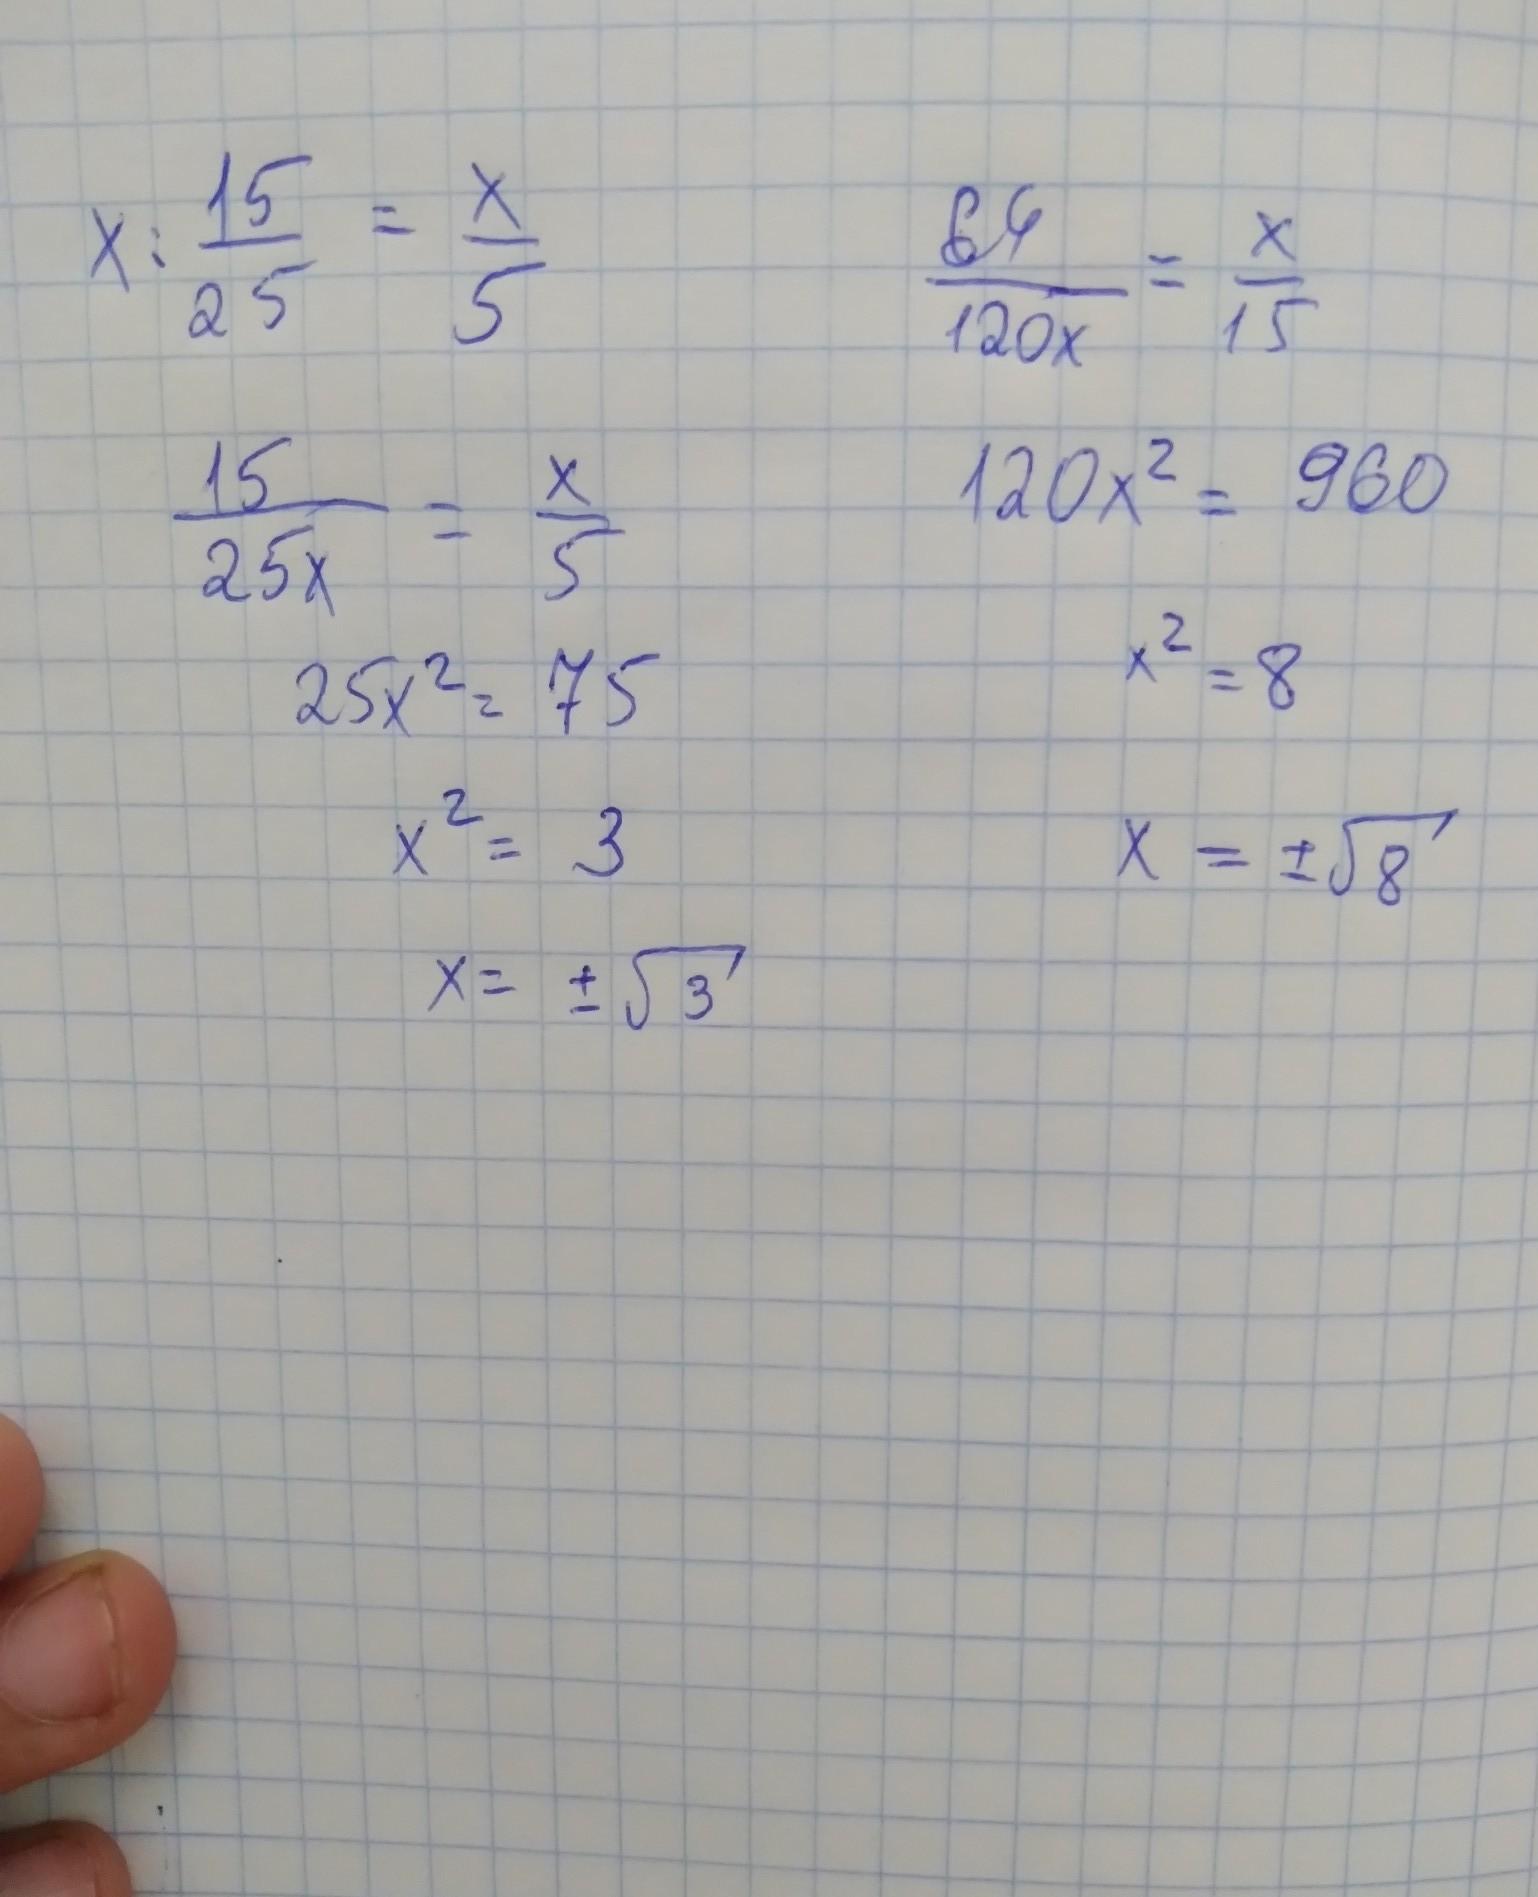 x : 15/25 = x/5
15/25x = x/5
25x² = 75
x² = 3
x = ±√3
64/120x = x/15
120x² = 960
x² = 8
x = ±√8